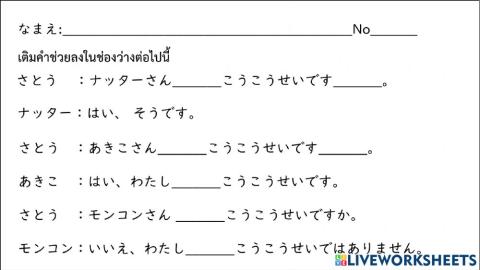 なまえ:________________________________No______
เติมคำช่วยลงในช่องว่างต่อไปนี้
さとう ：ナッターさん______こうこうせいです______。
ナッター：はい、 そうです。
さとう ：あきこさん______こうこうせいです______。
あきこ ：はい、わたし______こうこうせいです。
さとう ：モンコンさん ______こうこうせいですか。
モンコン：いいえ、わたし______こうこうせいではありません。
LIVEWORKSHEETS